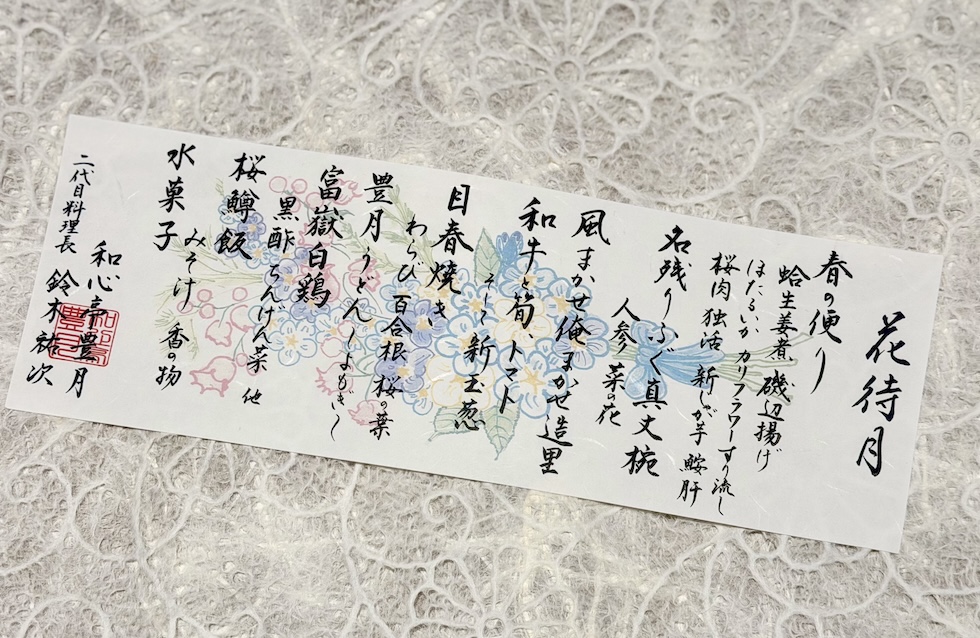 花待月
春の便り
蛤生姜煮 磯辺揚げ
ほたるいか カリフラワーすり流し
桜肉 独活 新じゃが芋 鮟肝
名残りふぐ真丈椀
人参 菜の花
風まかせ俺まかせ造里
和牛と筍、トマト
そして新玉葱
目春焼き
わらび 百合根 桜の葉
豊月うどん〜よもぎ〜
富嶽白鶏
黒酢 ちんげん菜 他
桜鱒飯
みそ汁 香の物
水菓子
和心亭豊月
二代目料理長 鈴木祐次